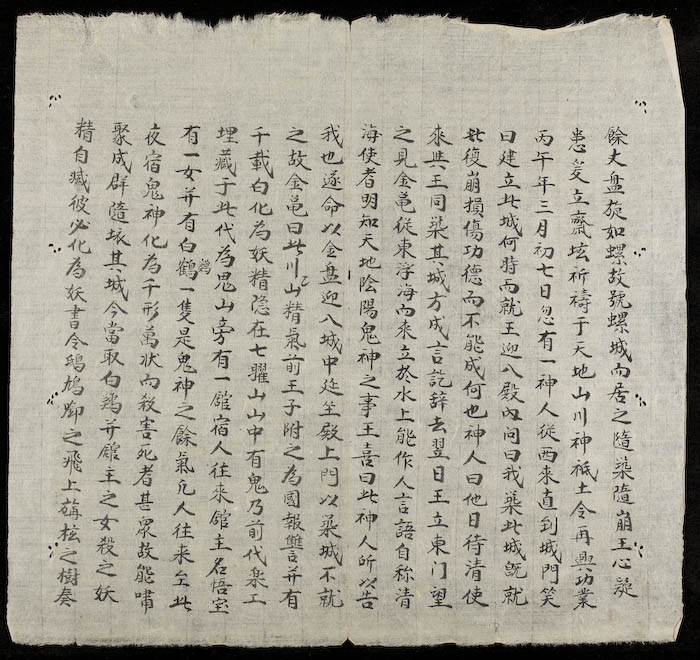 餘丈盤旋如螺故號螺城而居之隨築隨崩王心疑
患爰立齋壇祈禱于天地山川神祇土令再興功業
丙午年三月初七日忽有一神人從西來直到城門笑
曰建立此城何時而就王迎入殿內問曰我築此城既就
此復崩損傷功德而不能成何也神人曰他日待清使
來與王同築其城方成言訖辞去翌日王立東门望
之見金亀從東浮海而來立於水上能作人言語自称清
海使者明知天地陰陽鬼神之事王喜曰此神人所以告
我也遂命以金盤迎入城中延坐殿上門以築城不就
之故金亀曰此川山精氣前王子附之為國報讐并有
千載白化為妖精隐在七曜山山中有鬼乃前代楽工
埋藏于此代為鬼山旁有一舘宿人往來舘主名悟空
有一女并有白鶴鷄一隻是鬼神之餘氣凡人往來至此
夜宿鬼神化為千形萬状而殺害死者甚衆故能嘯
聚成群隨坏其城今當取白鷄并舘主之女殺之妖
精自滅彼必化為妖書令鴟鳩啣之飛上之樹奏